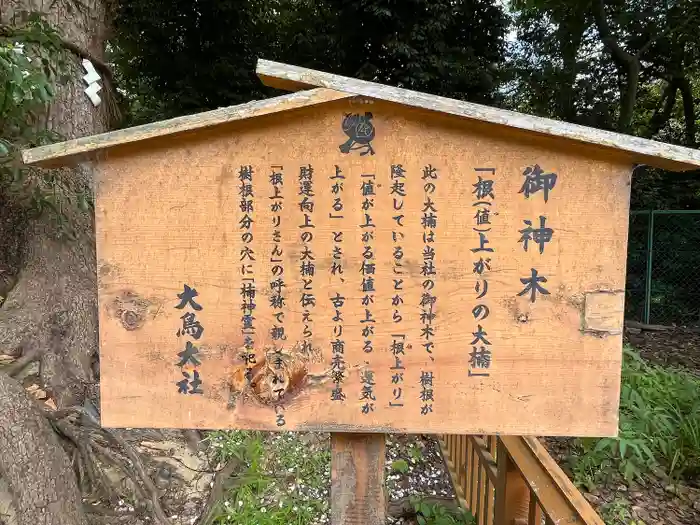 御神木
「根(値)上がりの大楠」
此の大楠は当社の御神木で、樹根が
隆起していることから「根上がり」
「値が上がる価値が上がる・運気が
上がる」とされ、古より商売繁盛
財運向上の大楠と伝えられ
「根上がりさん」の呼称で親しまれている
樹根部分の穴に「楠神霊」を祀る
大鳥大社